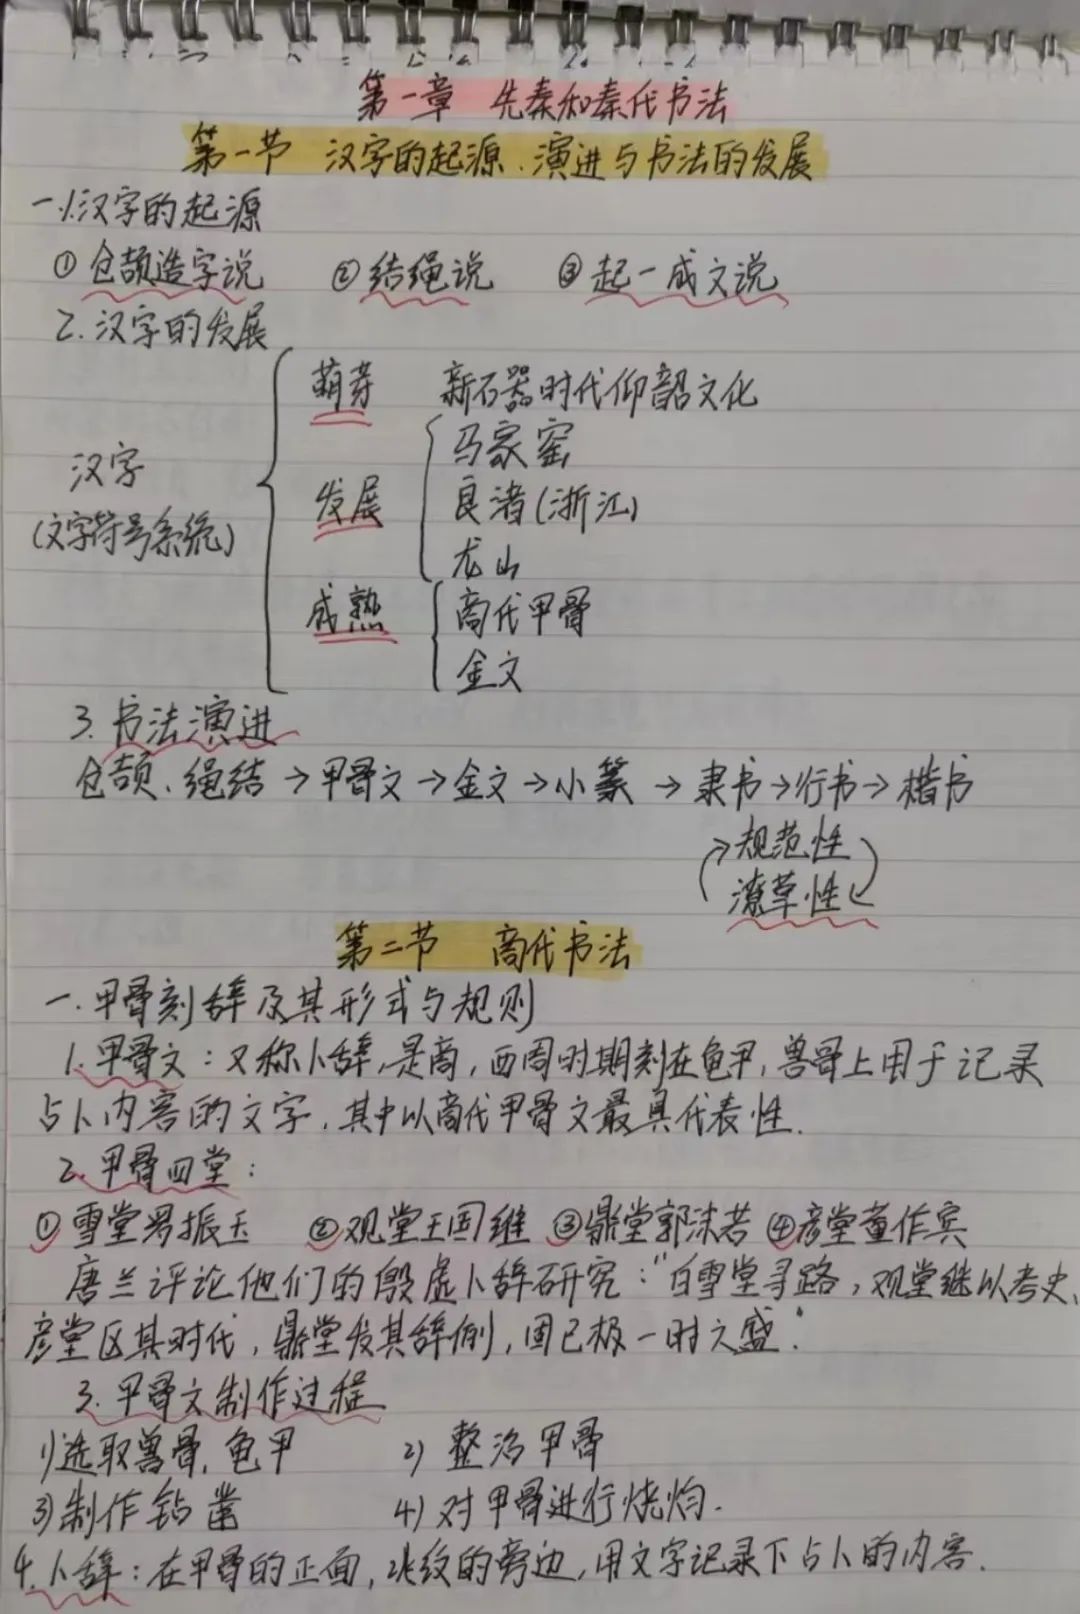 第一章 先秦和秦代书法
第一节 汉字的起源、演进与书法的发展
一.1.汉字的起源
①仓颉造字说 ②结绳说 ③起一成文说
2.汉字的发展
萌芽 新石器时代仰韶文化
马家窑
汉字
发展 良渚(浙江)
(文字符号系统)
龙山
成熟 商代甲骨
金文
3.书法演进
仓颉、绳结→甲骨文→金文→小篆→隶书→行书→楷书
规范性
潦草性
第二节 商代书法
一.甲骨刻辞及其形式与规则
1.甲骨文:又称卜辞,是商,西周时期刻在龟甲,兽骨上用于记录
占卜内容的文字,其中以商代甲骨文最具代表性.
2.甲骨四堂:
①雪堂罗振玉 ②观堂王国维 ③鼎堂郭沫若 ④彦堂董作宾
唐兰评论他们的殷虚卜辞研究:“自雪堂寻路,观堂继以考史,
彦堂区其时代,鼎堂发其辞例,固已极一时之盛”.
3.甲骨文制作过程
1)选取兽骨,龟甲 2)整治甲骨
3)制作钻凿 4)对甲骨进行烧灼.
4.卜辞:在甲骨的正面,兆纹的旁边,用文字记录下占卜的内容.